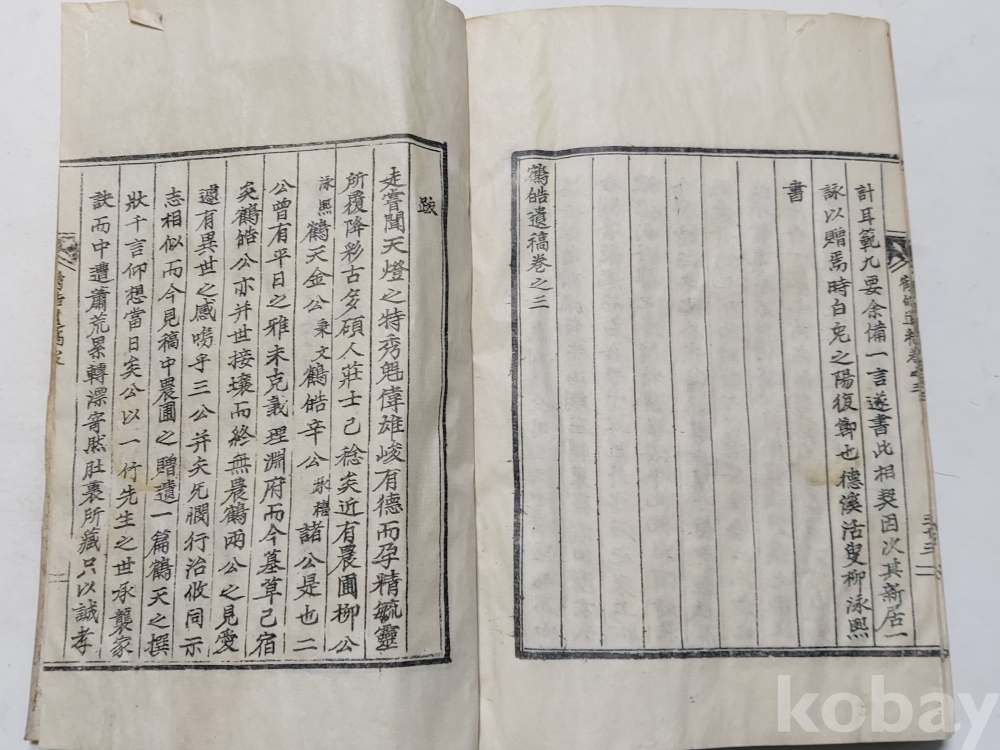 計耳範九要余備一言遂書此相契因次其新居一
詠以贈焉時白兔之陽復節也德溪活叟柳泳熙
書
鶴皓遺稿卷之三
跋
走嘗聞天燈之特秀魁偉雄峻有德而孕精毓靈
所覆降彩古多碩人莊士已稔矣近有農圃柳公
泳熙鶴天金公秉文鶴皓辛公諸公是也二
公曾有平日之雅未克義理淵府而今墓草已宿
矣鶴皓公亦并世接壤而終無農鶴兩公之見愛
遽有異世之感嗚乎三公并矣旡憫行治攸同示
志相似而今見稿中農圃之贈遺一篇鶴天之撰
狀千言仰想當日矣公以一行先生之世承襲家
訣而中遭蕭荒累轉漂寄然肚裏所藏只以誠孝
kobay